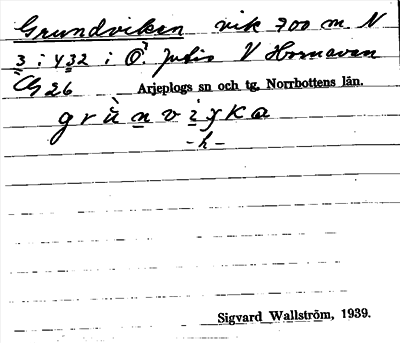 Grundviken vik 700 m N
3 i 432 i Ö. Jutis V Hornavan
26 Arjeplogs sn och tg, Norrbottens län.
-h-
Sigvard Wallström, 1939.